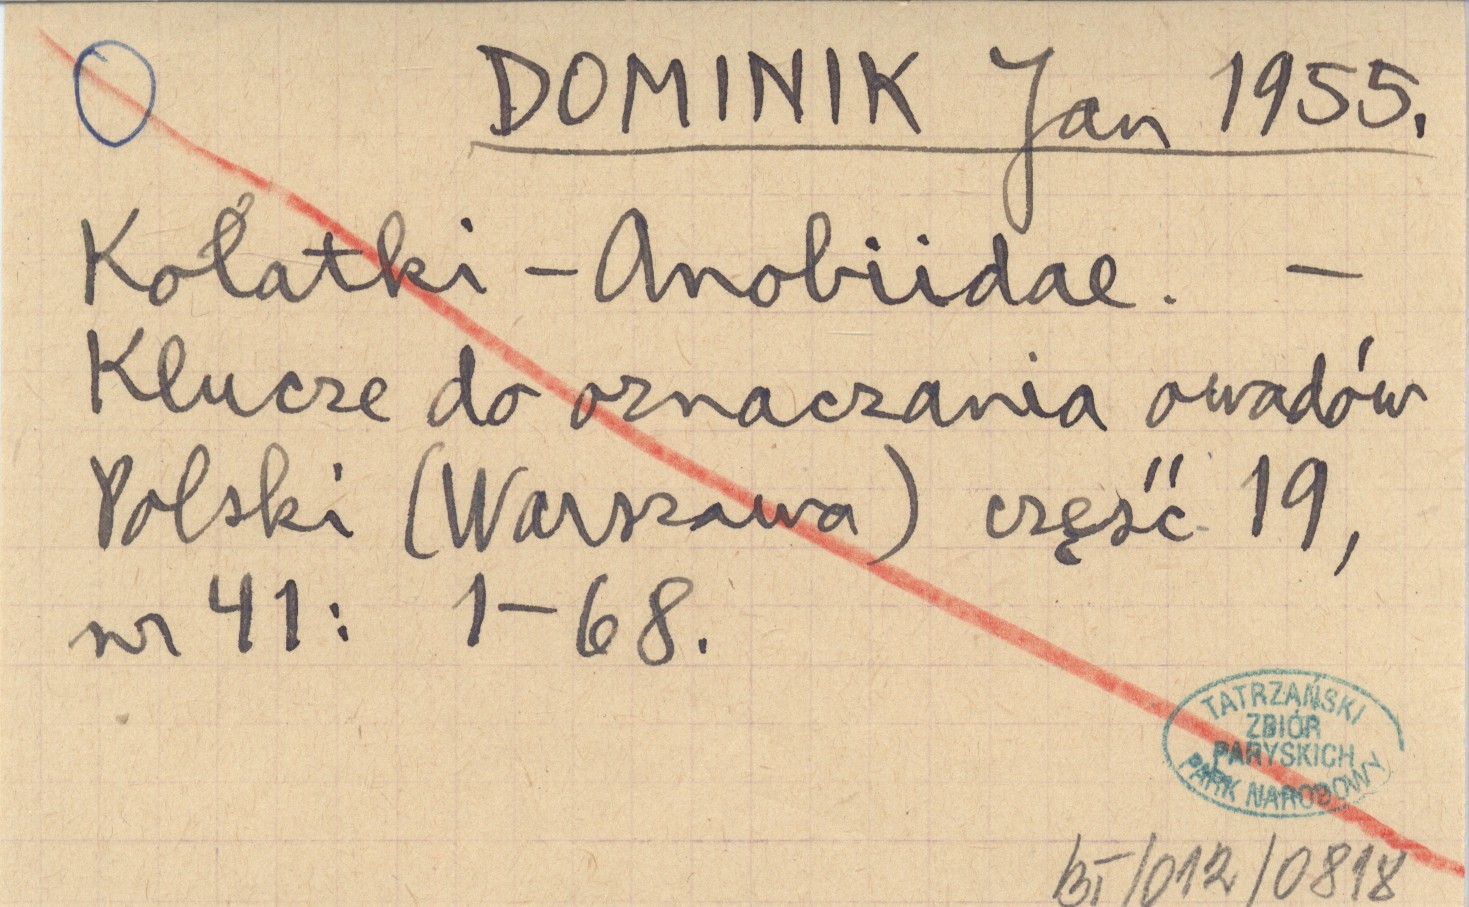 DOMINIK Jan 1955.
Kołatki – Anobiidae. –
Klucze do oznaczania owadów
Polski (Warszawa) część 19,
nr 41: 1–68.
TATRZAŃSKI
ZBIÓR
PARYSKICH
PARK NARODOWY
BT/012/0818